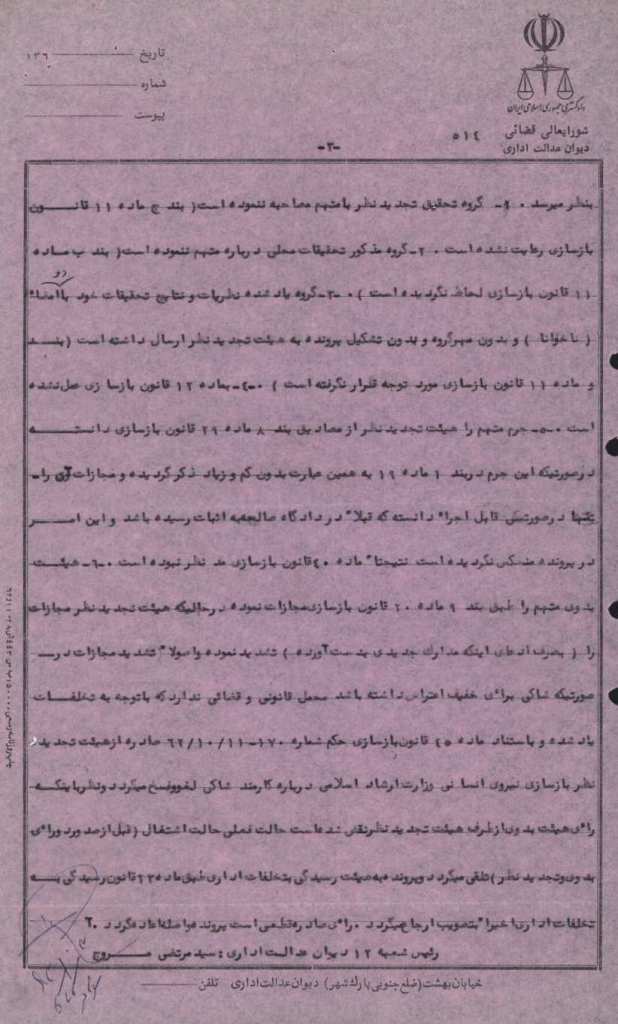 دادگستری جمهوری اسلامی ایران
شورایعالی قضائی
دیوان عدالت اداری
۵۱۴
تاریخ ۱۳۶
شماره
پیوست
-۳-
بنظر میرسد ۰ ۱- گروه تحقیق تجدید نظر با متهم مصاحبه ننموده است( بند ج ماده ۱۱ قانون
بازسازی رعایت نشده است ۰ ۲-گروه مذکور تحقیقات محلی درباره متهم ننموده است( بند ب ماده
۱۱ قانون بازسازی لحاظ نگردیده است )۰ ۳-گروه یاد شده نظریات و نتایج تحقیقات خود با دو امضاء
( ناخوانا ) و بدون مهر گروه و بدون تشکیل پرونده به هیئت تجدید نظر ارسال داشته است (بند
و ماده ۱۱ قانون بازسازی مورد توجه قرار نگرفته است ) ۰ ۴-بماده ۱۲ قانون بازسازی عمل نشده
است ۰ ۵- جرم متهم را هیئت تجدید نظر از مصادیق بند ۸ ماده ۲۹ قانون بازسازی دانسته
درصورتیکه این جرم در بند ۱ ماده ۱۹ به همین عبارت بدون کم و زیاد ذکر گردیده و مجازات آن را-
تنها درصورتی قابل اجراء دانسته که قبلا" در دادگاه صالحه به اثبات رسیده باشد و این امر
در پرونده منعکس نگردیده است نتیجتا" ماده ۴۰ قانون بازسازی مد نظر نبوده است ۰ ۶- هیئت
بدوی متهم را طبق بند ۹ ماده ۲۰ قانون بازسازی مجازات نموده درحالیکه هیئت تجدید نظر مجازات
را ( بصرف ادعای اینکه مدارک جدیدی بدست آورده ) تشدید نموده واصولا" تشدید مجازات در
صورتیکه شاکی برای تخفیف اعتراض داشته باشد محمل قانونی و قضائی ندارد که باتوجه به تخلفات
یاد شده و باستناد ماده ۴۵ قانون بازسازی حکم شماره ۱۷۰-۶۲/۱۰/۱۱ صادره از هیئت تجدید
نظر بازسازی نیروی انسانی وزارت ارشاد اسلامی درباره کارمند شاکی لغو و فسخ میگردد و نظر باینکه
رای هیئت بدوی از طرف هیئت تجدید نظر نقض شده است حالت فعلی حالت اشتغال (قبل از صدور و رای
بدوی و تجدید نظر) تلقی میگردد و پرونده به هیئت رسیدگی بتخلفات اداری طبق ماده ۲۳ قانون رسیدگی به
تخلفات اداری اخیرا" بتصویب ارجاع میگردد ۰ رای صادره قطعی است پرونده مواصله اعاده گردد ۰
رئیس شعبه ۱۲ دیوان عدالت اداری : سید مرتضی مروج
خیابان بهشت (ضلع جنوبی پارک شهر) دیوان عدالت اداری تلفن